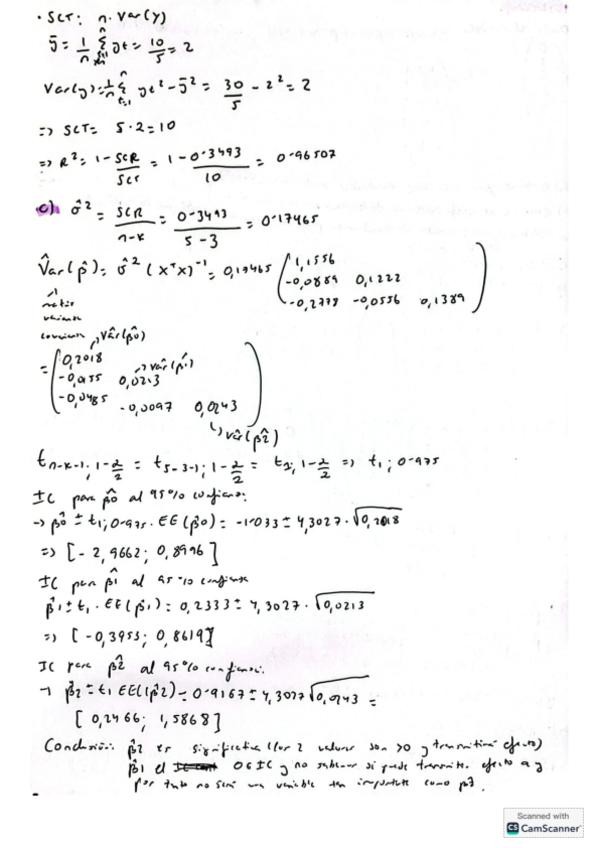 · SCT: n · Var(y)
ȳ = 1/n Σ yt = 10/5 = 2
Var(y) = 1/n Σ yt² - ȳ² = 30/5 - 2² = 2
=> SCT = 5 · 2 = 10
=> R² = 1 - SCR/SCT = 1 - 0'3493/10 = 0'96507
c) σ̂² = SCR/n-k = 0'3493/5-3 = 0'17465
V̂ar(β̂) = σ̂² (XᵀX)⁻¹ = 0,17465 ( 1,1556
-0,0889 0,1222
-0,2778 -0,0556 0,1389 )
V̂ar(β̂0)
= ( 0,2018 → V̂ar(β̂1)
-0,0155 0,0213
-0,0485 -0,0097 0,0243 )
↳ V̂ar(β̂2)
t n-k-1; 1-α/2 = t 5-3-1; 1-α/2 = t1, 1-α/2 => t1; 0'975
IC para β̂0 al 95% confianza:
→ β̂0 ± t1; 0'975 · EE(β̂0) = -1'033 ± 4,3027 · √0,2018
=> [-2,9662; 0,8996]
IC para β̂1 al 95% confianza
β̂1 ± t1 · EE(β̂1) = 0,2333 ± 4,3027 · √0,0213
=> [-0,3953; 0,8619]
IC para β̂2 al 95% confianza:
→ β̂2 ± t1 EE(β̂2) = 0'9167 ± 4,3027 √0,0243 =
[0,2466; 1,5868]
Conclusión: β̂2 es significativa (los 2 valores son >0 y efecto)
β̂1 el 0 ∈ IC y no sabemos si puede efecto a y
por tanto no será una variable tan importante como β̂2.
Scanned with
CS CamScanner